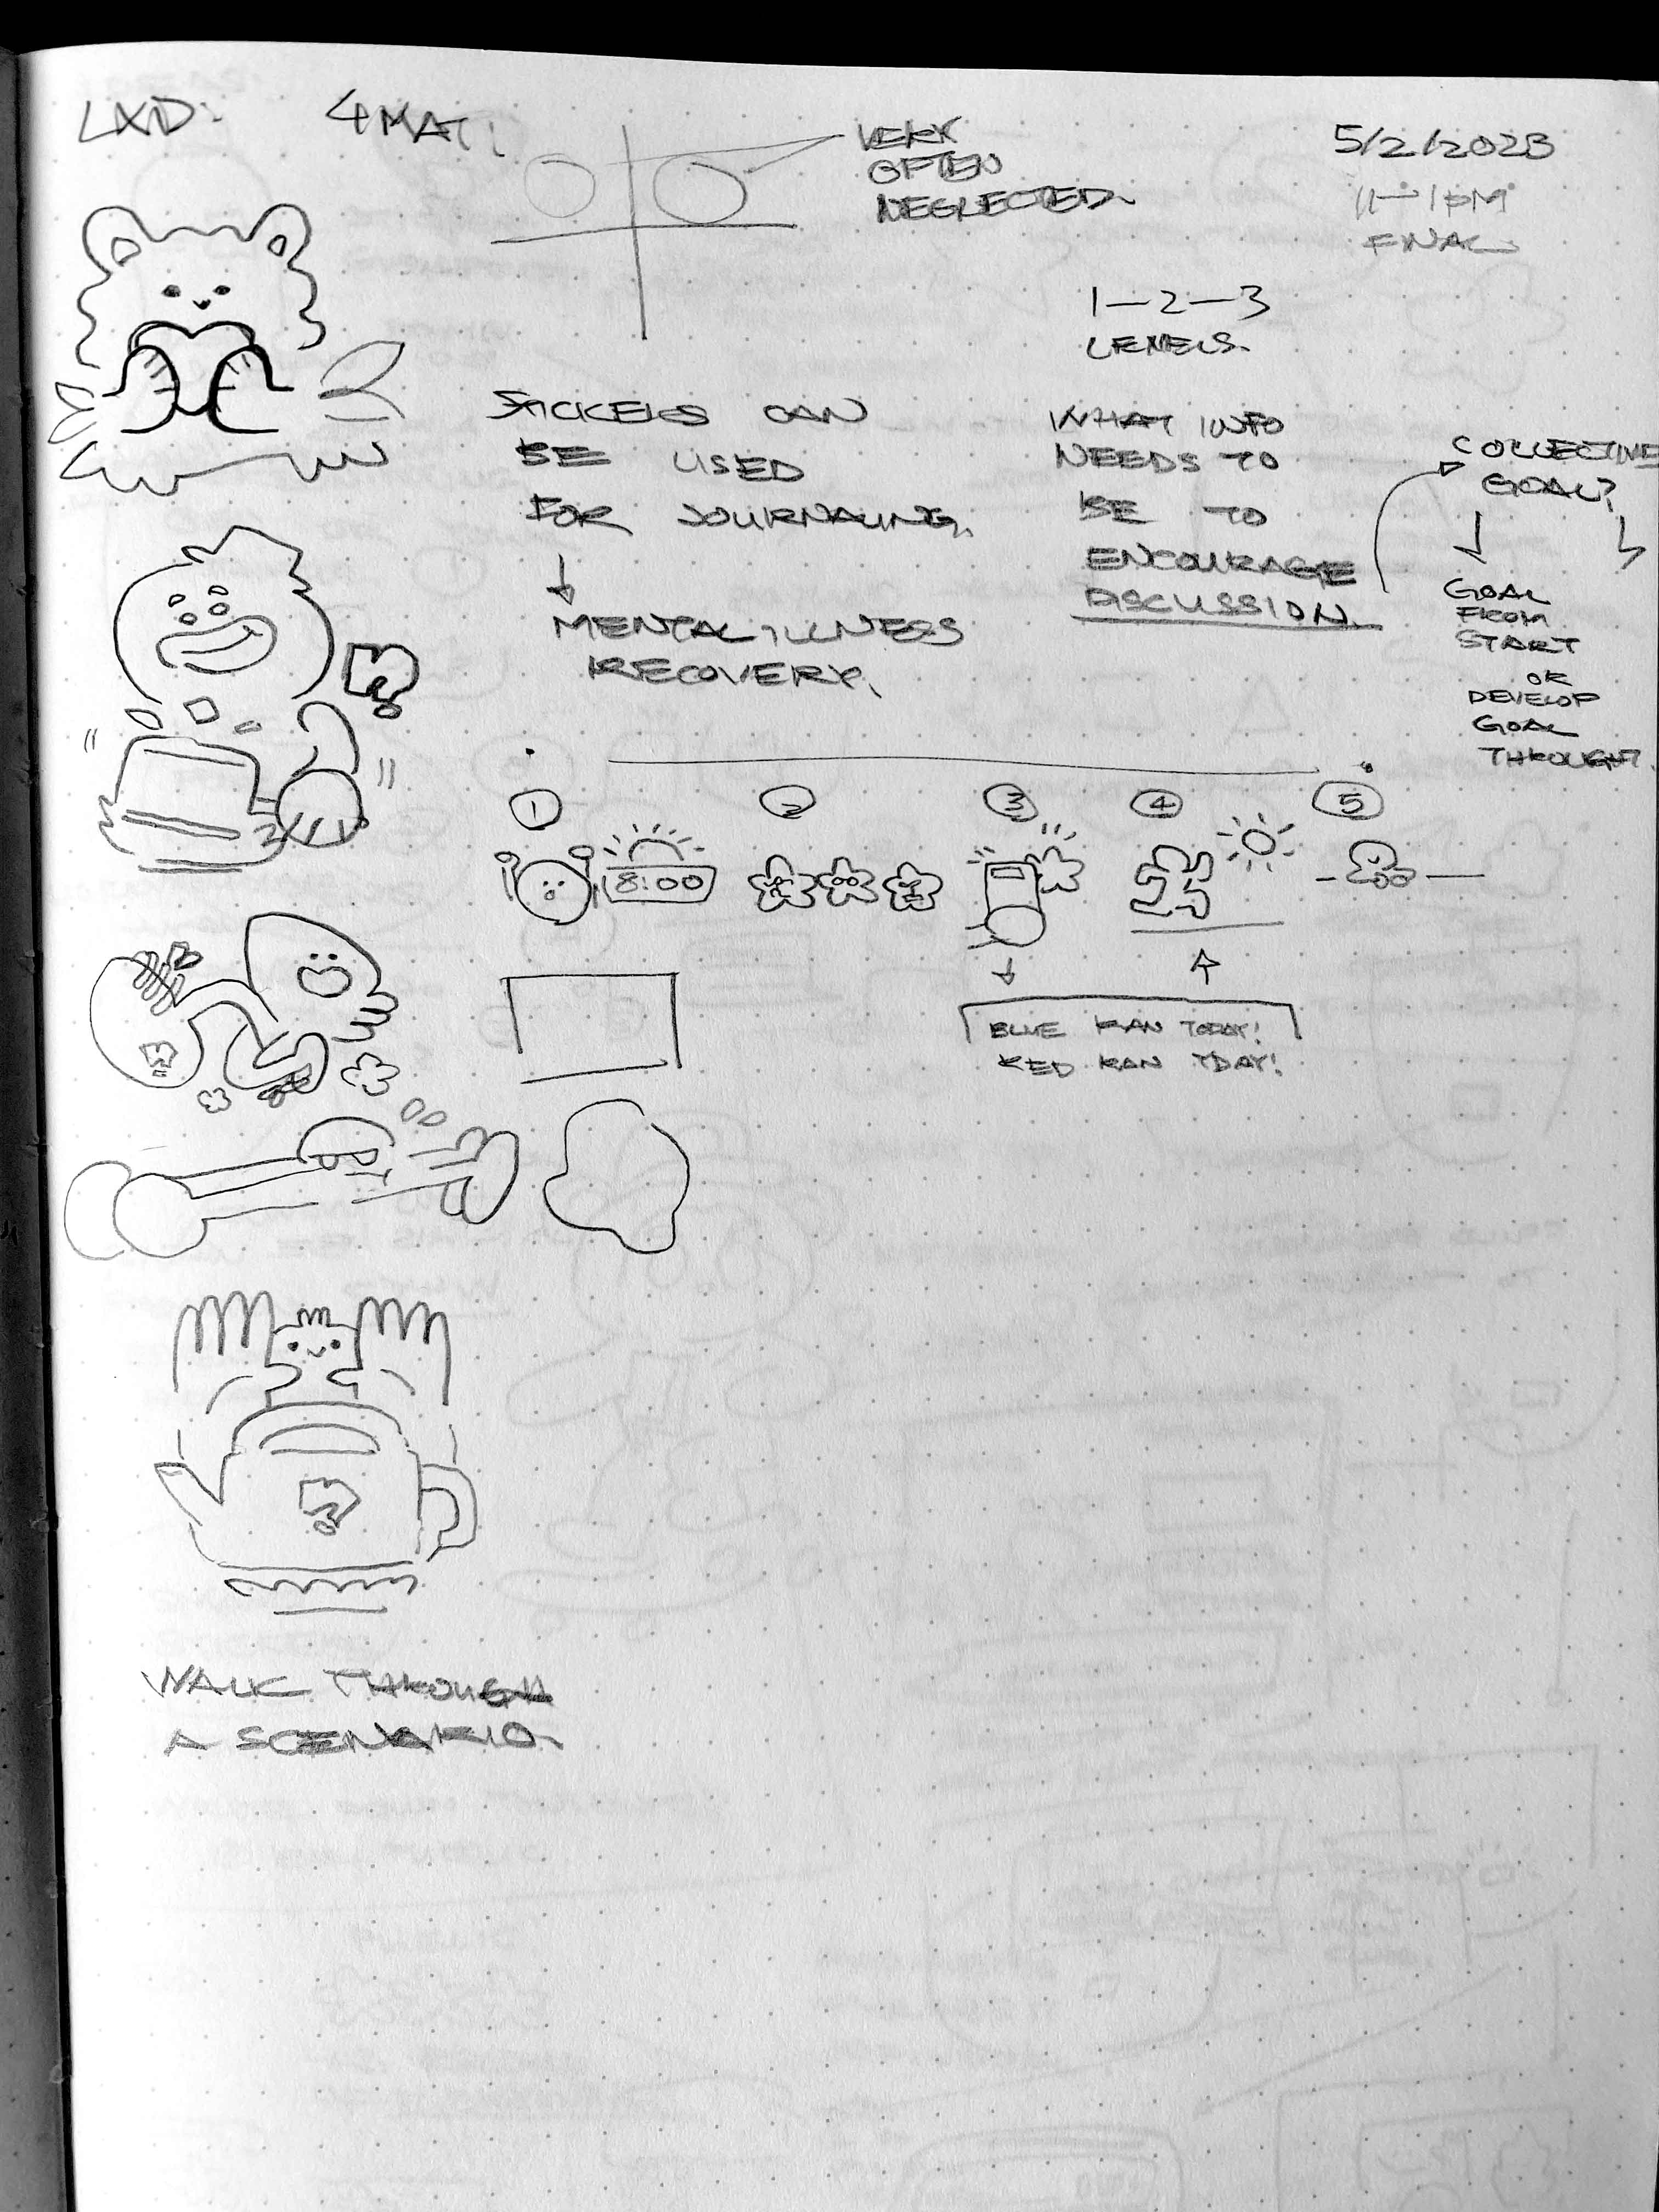 LXD:
4MAT:
VERY
OFTEN
NEGLECTED.
5/2/2023
11–1PM
FINAL
1–2–3
LEVELS.
STICKERS CAN
BE USED
FOR JOURNALING.
MENTAL ILLNESS
RECOVERY.
WHAT INFO
NEEDS TO
BE TO
ENCOURAGE
DISCUSSION.
COLLECTIVE
GOAL?
GOAL
FROM
START
OR
DEVELOP
GOAL
THROUGH?
1 2 3 4 5
8:00
BLUE RAN TODAY!
RED RAN TDAY!
WALK THROUGH
A SCENARIO.